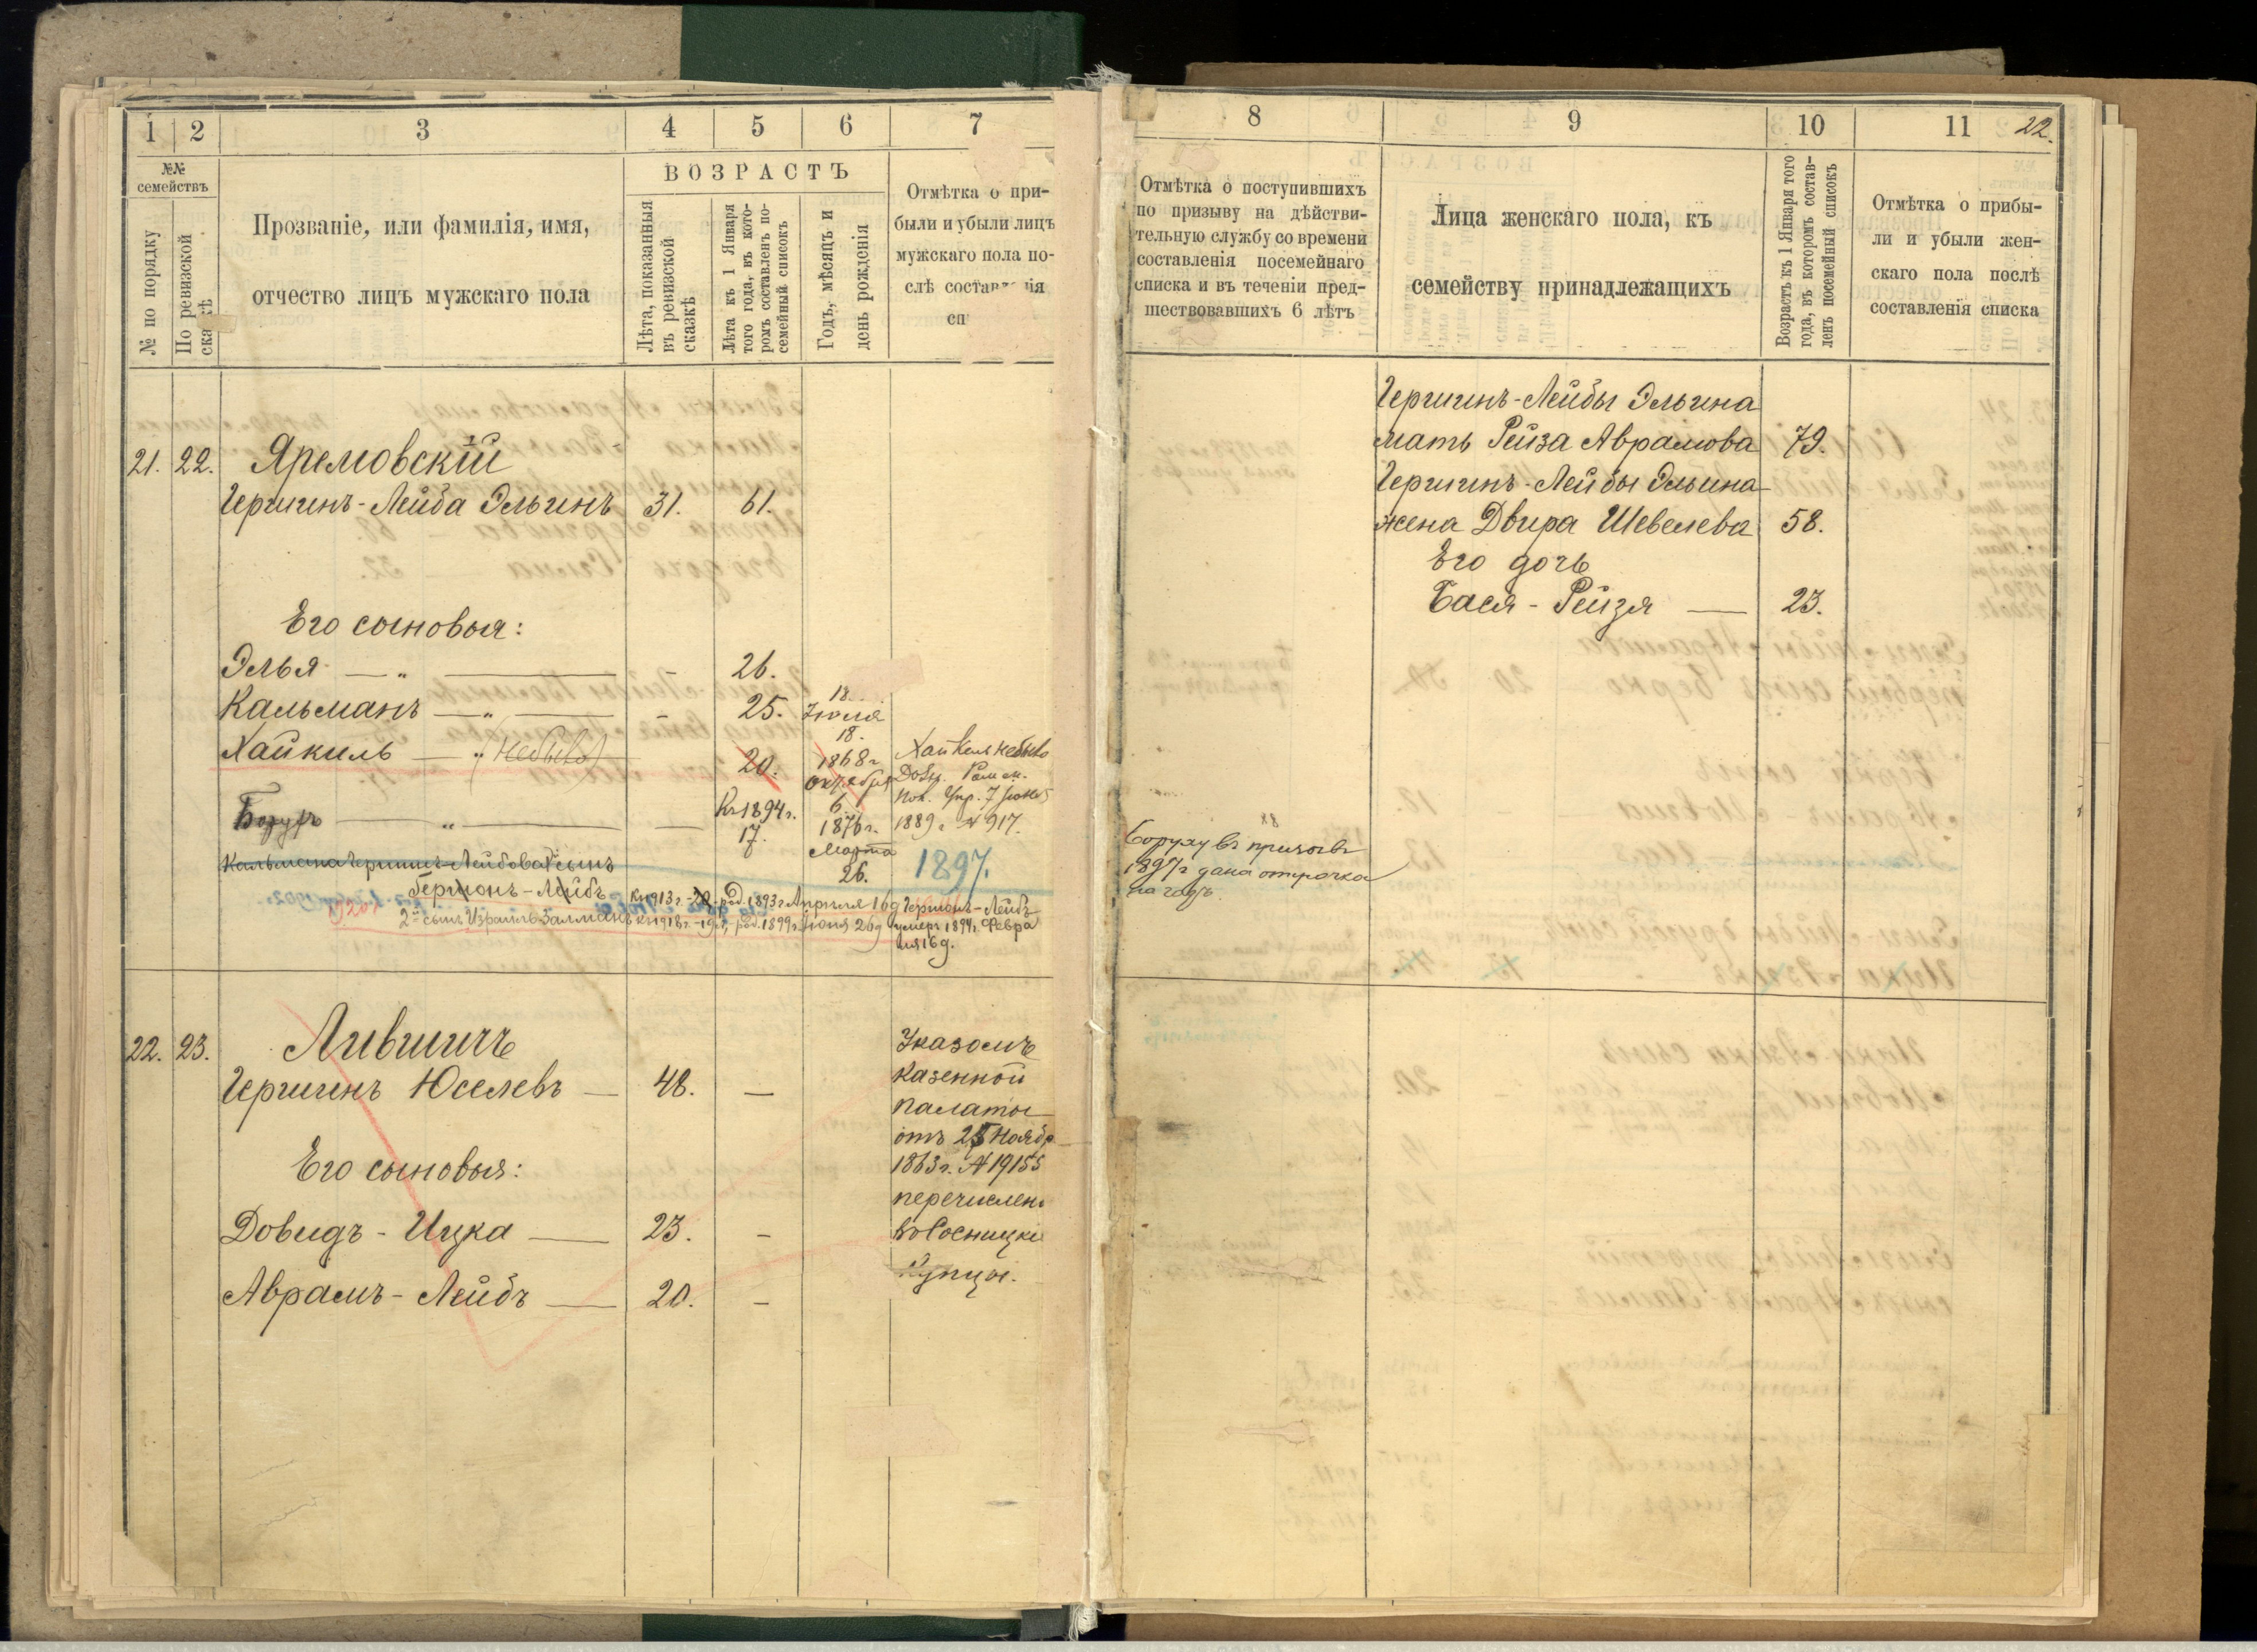 1 2 3 4 5 6 7
№№ семействъ
№ по порядку
По ревизской
Прозваніе, или фамилія, имя,
отчество лицъ мужскаго пола
ВОЗРАСТЪ
Лѣта, показанныя
въ ревизской
сказкѣ
Лѣта къ 1 Января
того года, въ кото-
ромъ составленъ по-
семейный списокъ
Годъ, мѣсяцъ и
день рожденія
Отмѣтка о при-
были и убыли лицъ
мужскаго пола по-
слѣ
21. 22. Яремовскій
Гершенъ-Лейба Эльинъ 31. 61.
Его сыновья:
Элья — „ — - 26.
Кальманъ — „ — - 25. 18
Іюля
18.
Хайкиль — „ (небыло) 20. 1868 г.
Октября
6.
Хайкель небыло
1889 г. № 917.
Борухъ — „ — — Къ 1894 г.
17.
1876 г.
Марта
26.
1897.
Кальмана Гершенъ-Лейбова сынъ
Гершонъ-Лейбъ къ 1913 г. -20- род. 1893 г. Апрѣля 16 д Гершонъ-Лейбъ
2й сынъ Израиль Залманъ къ 1918 г. -19 л, род. 1899 г. Іюня 26 д умеръ 1894, Февра
ля 16 д.
22. 23. Лившичъ
Гершенъ Юселевъ — 48. —
Его сыновья:
Довидъ-Ицка — 23. -
Аврамъ-Лейбъ — 20. -
Указомъ
Казенной
Палаты
отъ 25 Ноябр
1863 г. № 19155
перечислен
Купцы.
8 9 10 11 22.
Отмѣтка о поступившихъ
по призыву на дѣйстви-
тельную службу со времени
составленія посемейнаго
списка и въ теченіи пред-
шествовавшихъ 6 лѣтъ
Лица женскаго пола, къ
семейству принадлежащихъ
Возрастъ къ 1 Января того
года, въ которомъ состав-
ленъ посемейный списокъ
Отмѣтка о прибы-
ли и убыли жен-
скаго пола послѣ
составленія списка
Гершенъ-Лейбы Эльина
мать Рейза Абрамова 79.
Гершенъ-Лейбы Эльина
жена Двира Шевелева 58.
Его дочь
Бася-Рейзя — 23.
Боруху въ призывъ
1897 г дана отсрочка
на годъ.